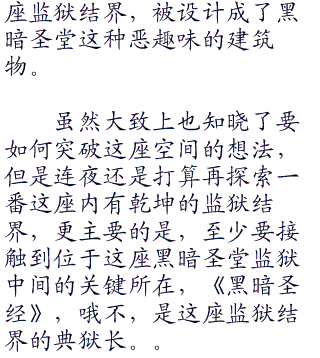 座监狱结界，被设计成了黑
暗圣堂这种恶趣味的建筑
物。
虽然大致上也知晓了要
如何突破这座空间的想法，
但是连夜还是打算再探索一
番这座内有乾坤的监狱结
界，更主要的是，至少要接
触到位于这座黑暗圣堂监狱
中间的关键所在，《黑暗圣
经》，哦不，是这座监狱结
界的典狱长。。